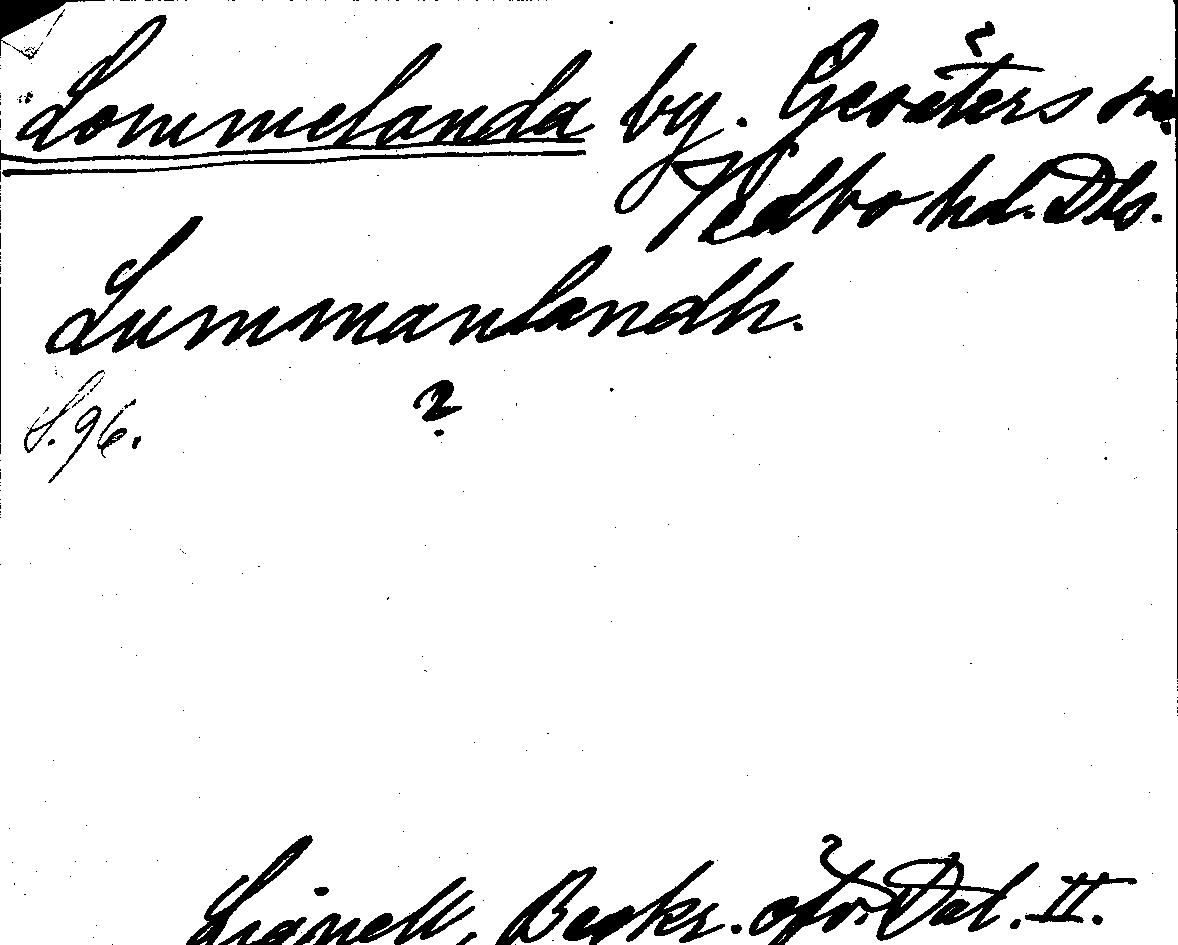 Lommelanda by. Gesäters sn.
Vedbo hd. Dls.
Lummanlandh.
S. 96.
?
Lignell, Beskr. öfv. Dal. II.